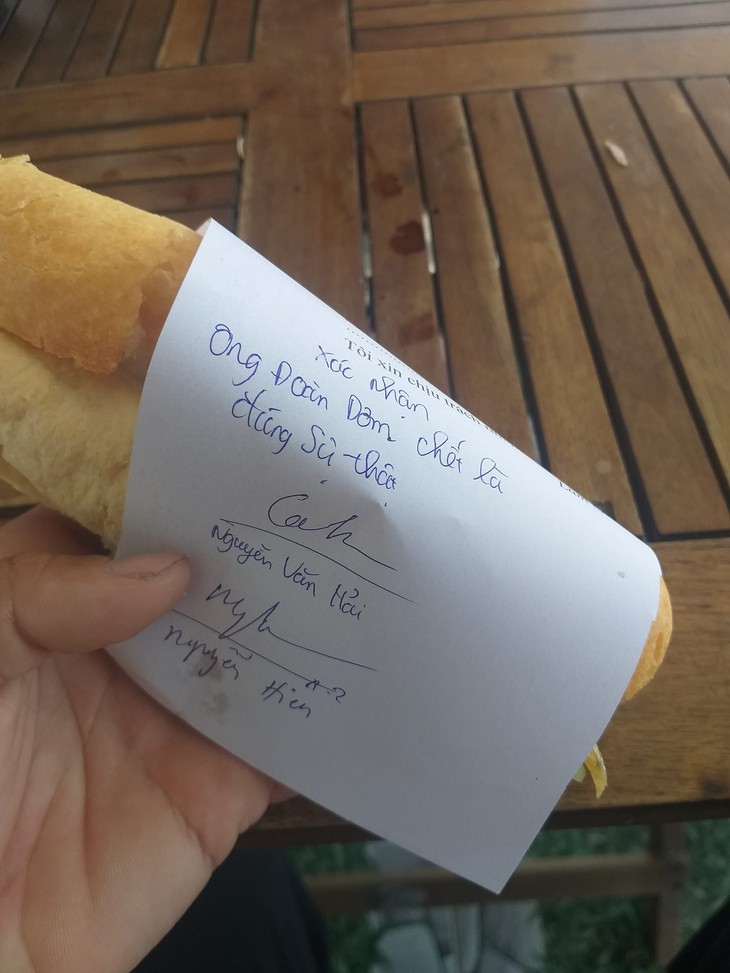 Tôi xin chịu trách
Xác nhận
Ông Đoàn Dơm chết là
đúng sự thật
Nguyễn Văn Hải
Nguyễn Hiền